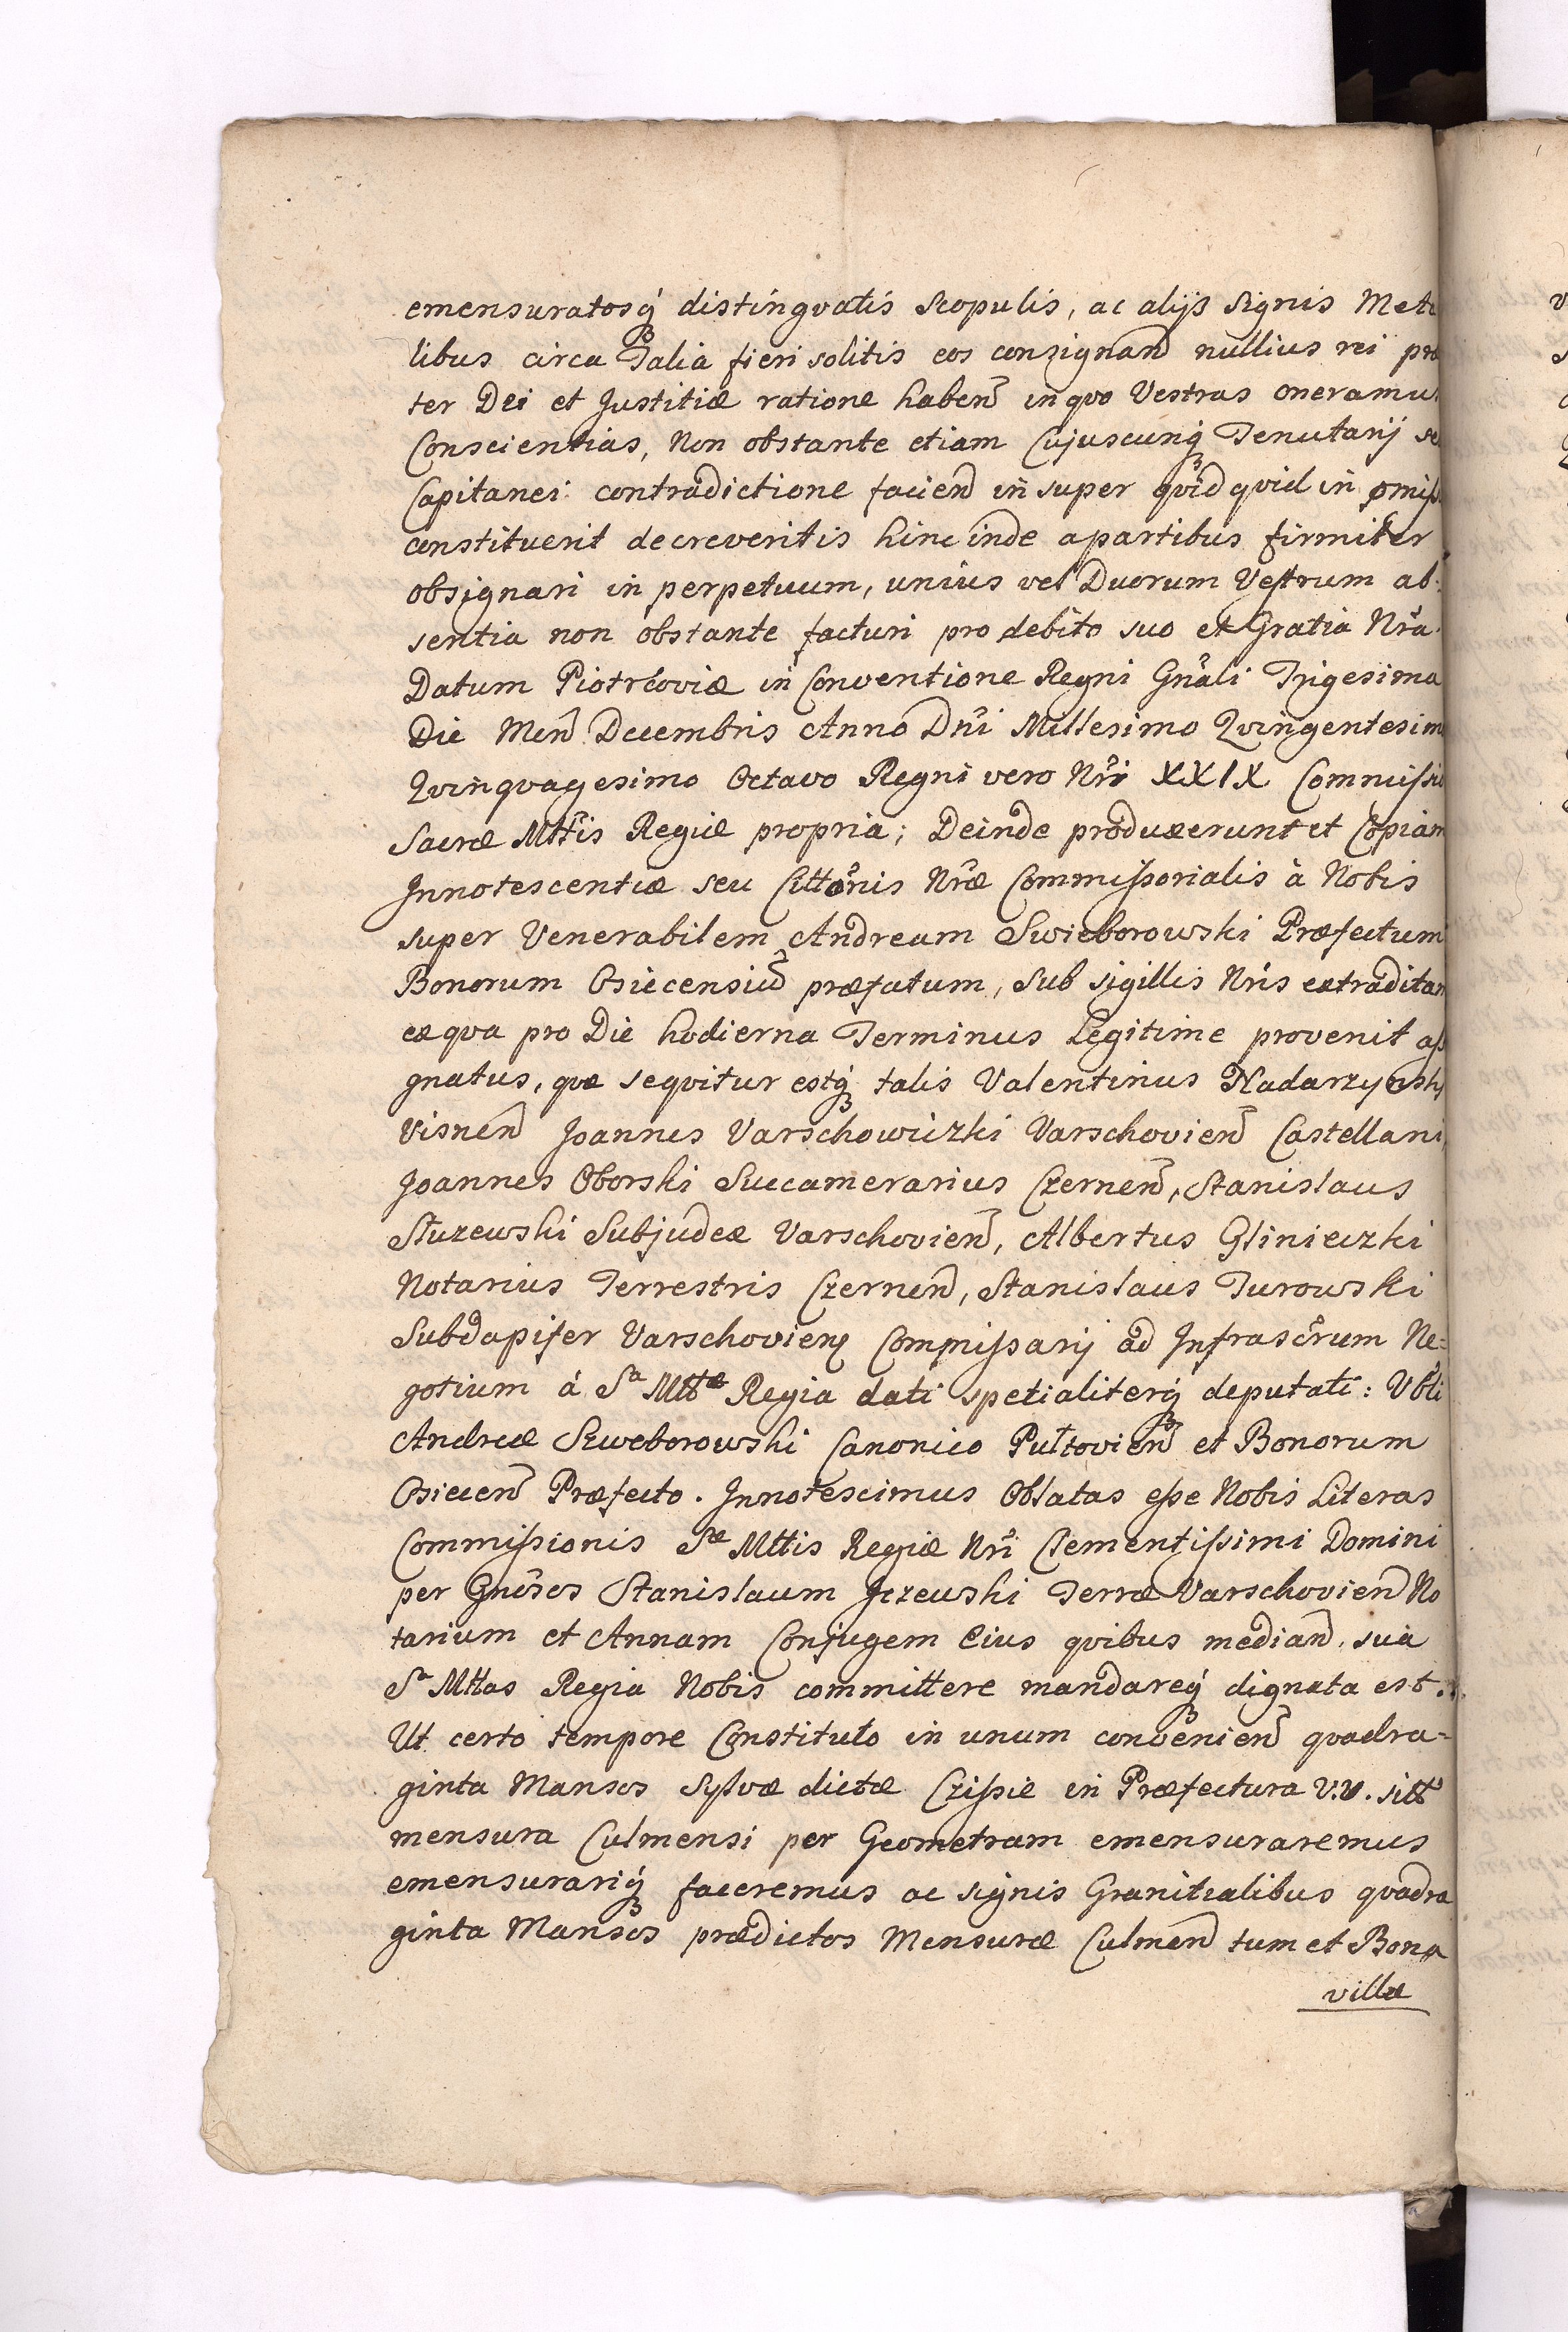 emensuratosq́ distingvatis scopulis, ac alijs signis Meta
libus circa Talia fieri solitis eos consignan̄ nullius rei præ
ter Dei et Justitiæ ratione haben̄ in qvo Vestras oneramus
Conscientias, Non obstante etiam Cujuscunq́ Tenutarij se
Capitanei contradictione facien̄ in super qvid qvid in pmiss
constituerit decreveritis hinc inde a partibus firmiter
obsignari in perpetuum, unius vel Duorum Vestrum ab:
sentia non obstante facturi pro debito suo et Gratia Nr̄a.
Datum Piotrcoviæ in Conventione Regni Gn̄ali Trigesima
Die Men̄ Decembris Anno Dn̄i Millesimo Qvingentesimo
Qvinqvagesimo Octavo Regni vero Nr̄i XXIX Commissio
Sacræ Mttis Regiæ propria; Deinde produxerunt et Copiam
Innotescentiæ seu Citt̄onis Nr̄æ Commissorialis à Nobis
super Venerabilem Andream Swieborowski Præfectum
Bonorum Osiecensiū præfatum, sub sigillis Nr̄is extraditam
ex qva pro Die hodierna Terminus Legitime provenit ass
gnatus, qvæ seqvitur estq́ talis Valentinus Nadarzynsky
Visnen̄ Joannes Varschowiczki Varschovien̄ Castellani,
Joannes Oborski Succamerarius Czernen̄, Stanislaus
Słuzewski Subjudex Varschovien̄, Albertus Glinieczki
Notarius Terrestris Czernen̄, Stanislaus Turowski
Subdapifer Varschovien̄ Commissarij ad Infrascr̄um Ne=
gotium á Sª Mttᵉ Regia dati spetialiterq́ deputati: Vbli
Andreæ Szweborowski Canonico Pułtovien̄ et Bonorum
Osiecen̄ Præfecto. Innotescimus Oblatas esse Nobis Literas
Commissionis Sæ Mttis Regiæ Nr̄i Clementissimi Domini
per Gnōsos Stanislaum Jezewski Terræ Varschovien̄ No
tarium et Annam Conjugem Eius qvibus median̄. sua
Sª Mttas Regia Nobis committere mandareq́ dignata est.
Ut certo tempore Constituto in unum convenien̄ qvadra=
ginta Mansos sylvæ dictæ Czissie in Præfectura V.V. sitt
mensura Culmensi per Geometram emensuraremus
emensurariq́ faceremus ac signis Granitialibus qvadra
ginta Mansos prædictos Mensuræ Culmen̄ tum et Bona
villæ